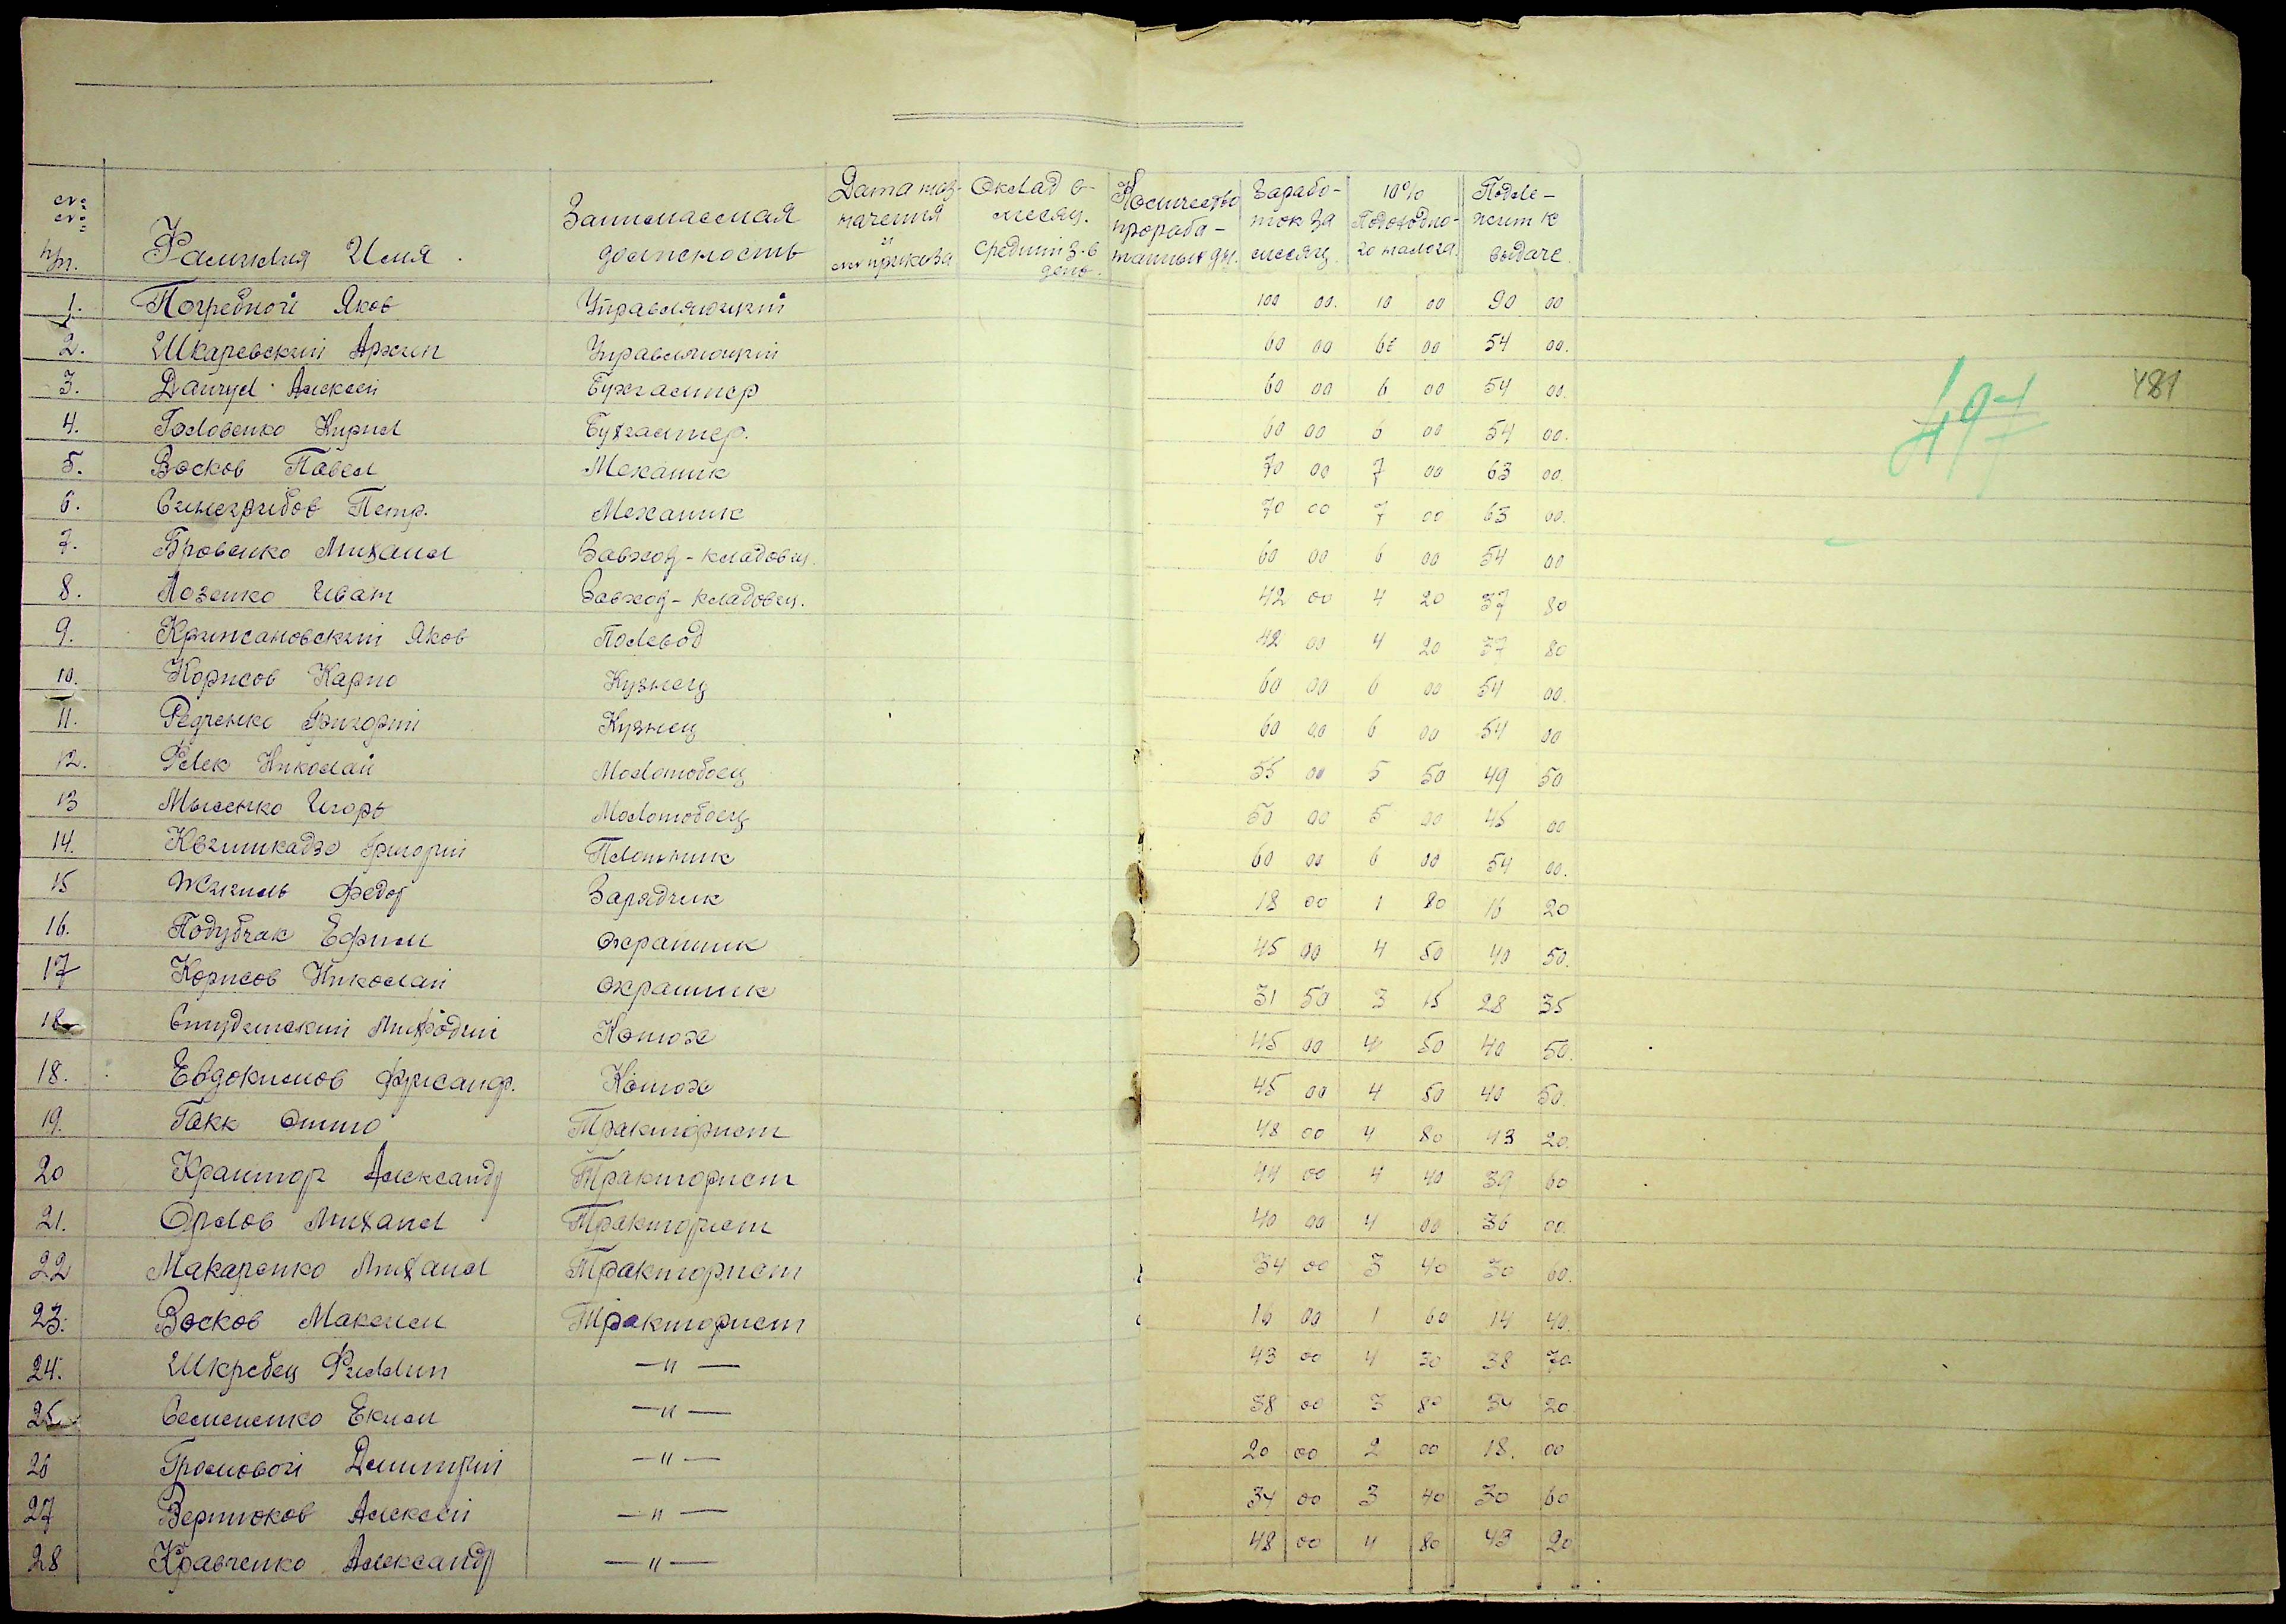 №№ п/п. Фамилия Имя. Занимаемая должность Дата наз-начения и № приказа Оклад в-месяц. средний з-в день. Количество прораба-танных дн. Зарабо-ток за месяц. 10% Подоходно-го налога. Подле-жит к выдаче.
1. Погребной Яков Управляющий 100 00. 10 00 90 00
2. Шкаревский Архип Управляющий 60 00 6 00 54 00.
3. Данчул Алексей Бухгалтер 60 00 6 00 54 00.
481
497
4. Головенко Кирил Бухгалтер. 60 00 6 00 54 00.
5. Восков Павел Механик 70 00 7 00 63 00.
6. Синегрибов Петр. Механик 70 00 7 00 63 00.
7. Бровенко Михаил Завхоз-кладовщ. 60 00 6 00 54 00
8. Лозенко Иван Завхоз-кладовщ. 42 00 4 20 37 80
9. Крижановский Яков Полевод 42 00 4 20 37 80
10. Корисов Карпо Кузнец 60 00 6 00 54 00.
11. Редченко Григорий Кузнец 60 00 6 00 54 00
12. Флек Николай Молотобоец 55 00 5 50 49 50
13 Мысенко Игорь Молотобоец 50 00 5 00 45 00
14. Квиникадзе Григорий Плотник 60 00 6 00 54 00.
15 Жигиль Федор Зарядчик 18 00 1 80 16 20
16. Подубчак Ефим Охраник 45 00 4 50 40 50.
17 Корисов Николай Охраник 31 50 3 15 28 35
18 Студзинский Мифодий Конюх 45 00 4 50 40 50.
18. Евдокимов Конюх 45 00 4 50 40 50.
19. Гакк Отто Тракторист 48 00 4 80 43 20.
20 Крантор Александр Тракторист 44 00 4 40 39 60
21. Орлов Михаил Тракторист 40 00 4 00 36 00.
22 Макаренко Михаил Тракторист 34 00 3 40 30 60.
23. Восков Максим Тракторист 16 00 1 60 14 40.
24. Шкребец Филлип —"— 43 00 4 30 38 70.
25 Семененко Еким —"— 38 00 3 80 34 20
26 Громовой Димитрий —"— 20 00 2 00 18. 00
27 Вертюков Алексей —"— 34 00 3 40 30 60
28 Кравченко Александр —"— 48 00 4 80 43 20